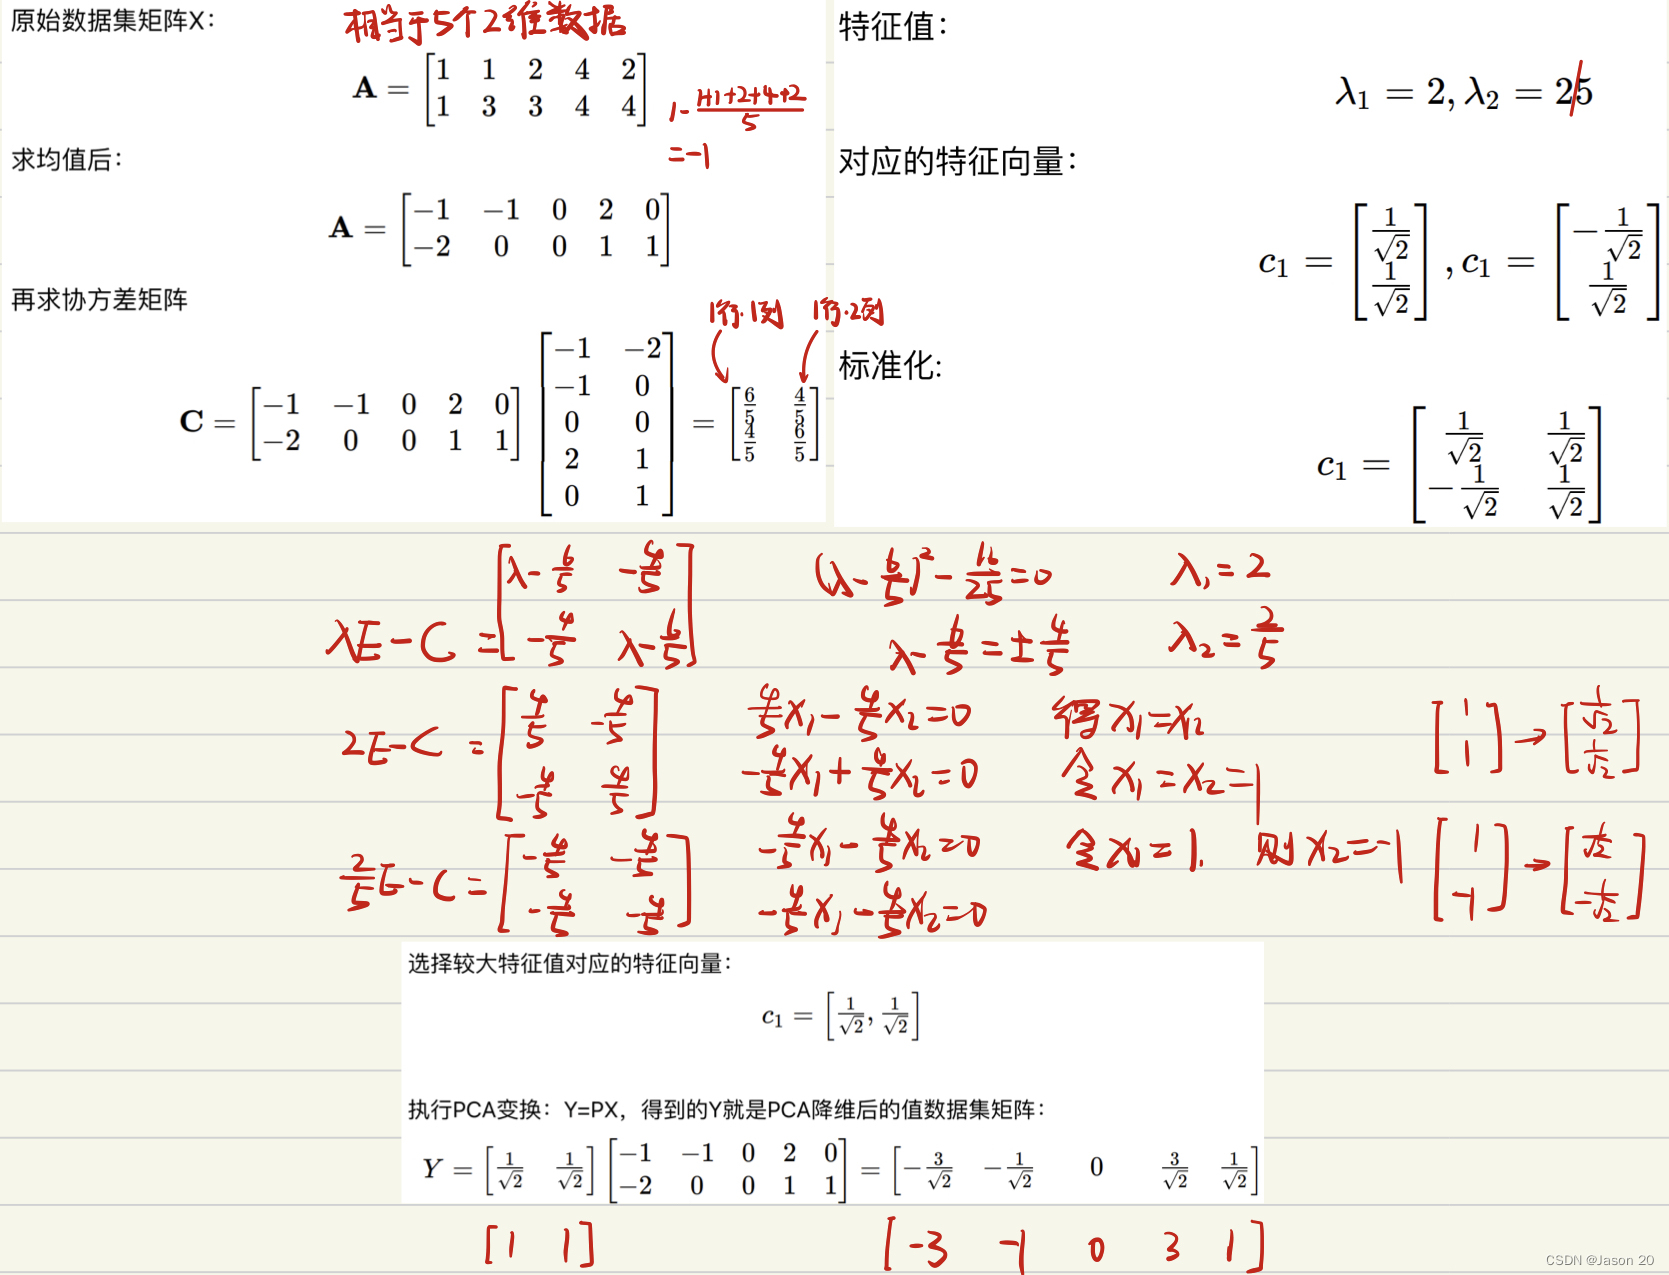 原始数据集矩阵X:
相当于5个2维数据
A = [1 1 2 4 2
1 3 3 4 4]
1- 1+1+2+4+2 / 5
=-1
求均值后:
A = [−1 −1 0 2 0
−2 0 0 1 1]
再求协方差矩阵
1行·1列 1行·2列
C = [−1 −1 0 2 0
−2 0 0 1 1]
[−1 −2
−1 0
0 0
2 1
0 1]
= [6/5 4/5
4/5 6/5]
特征值:
λ₁ = 2, λ₂ = 2/5
对应的特征向量:
c₁ = [1/√2
1/√2], c₁ = [−1/√2
1/√2]
标准化:
c₁ = [1/√2 1/√2
−1/√2 1/√2]
λE-C = [λ-6/5 -4/5
-4/5 λ-6/5]
(λ-6/5)²-16/25=0
λ-6/5=±4/5
λ₁=2
λ₂=2/5
2E-C = [4/5 -4/5
-4/5 4/5]
4/5x₁-4/5x₂=0 得x₁=x₂
-4/5x₁+4/5x₂=0 令x₁=x₂=1
[1
1] → [1/√2
1/√2]
2/5E-C = [-4/5 -4/5
-4/5 -4/5]
-4/5x₁-4/5x₂=0 令x₁=1. 则x₂=-1
-4/5x₁-4/5x₂=0
[1
-1] → [1/√2
-1/√2]
选择较大特征值对应的特征向量:
c₁ = [1/√2, 1/√2]
执行PCA变换: Y=PX, 得到的Y就是PCA降维后的值数据集矩阵:
Y = [1/√2 1/√2] [−1 −1 0 2 0
−2 0 0 1 1] = [−3/√2 −1/√2 0 3/√2 1/√2]
[1 1] [-3 -1 0 3 1]
CSDN @Jason 20